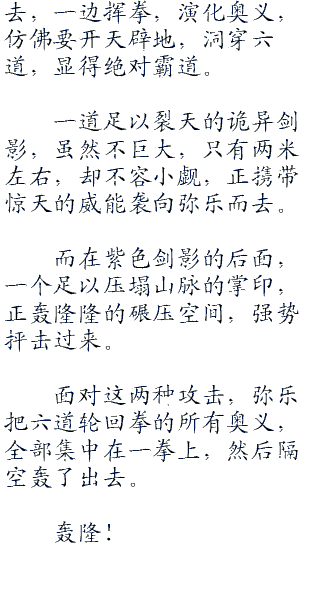 去，一边挥拳，演化奥义，
仿佛要开天辟地，洞穿六
道，显得绝对霸道。
一道足以裂天的诡异剑
影，虽然不巨大，只有两米
左右，却不容小觑，正携带
惊天的威能袭向弥乐而去。
而在紫色剑影的后面，
一个足以压塌山脉的掌印，
正轰隆隆的碾压空间，强势
抨击过来。
面对这两种攻击，弥乐
把六道轮回拳的所有奥义，
全部集中在一拳上，然后隔
空轰了出去。
轰隆！